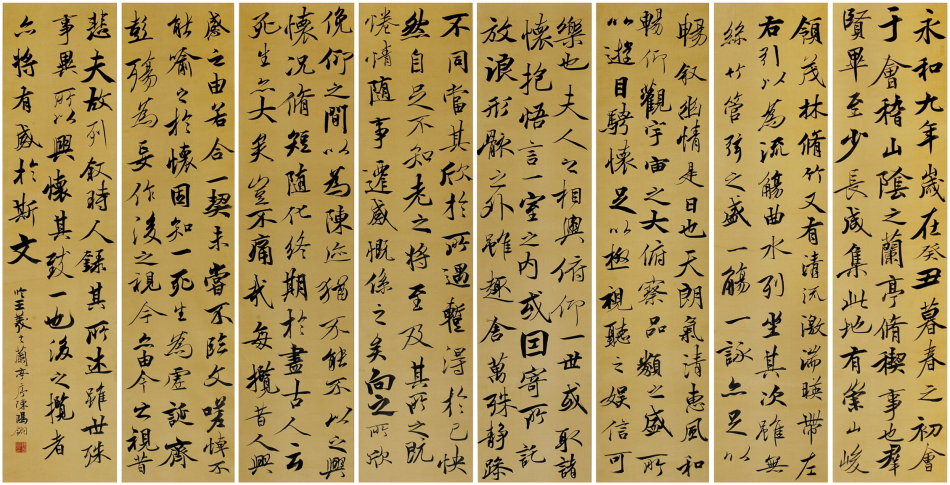 永和九年歲在癸丑暮春之初會
于會稽山陰之蘭亭脩稧事也羣
賢畢至少長咸集此地有崇山峻
領茂林脩竹又有清流激湍暎帶左
右引以為流觴曲水列坐其次雖無
絲竹管弦之盛一觴一詠亦足以
暢叙幽情是日也天朗氣清惠風和
暢仰觀宇宙之大俯察品類之盛所
以遊目騁懷足以極視聽之娛信可
樂也夫人之相與俯仰一世或取諸
懷抱悟言一室之內或因寄所託
放浪形骸之外雖趣舍萬殊静躁
不同當其欣於所遇暫得於己怏
然自足不知老之將至及其所之既
惓情隨事遷感慨係之矣向之所欣
俛仰之間以為陳迹猶不能不以之興
懷況脩短隨化終期於盡古人云
死生亦大矣豈不痛哉每攬昔人興
感之由若合一契未嘗不臨文嗟悼不
能喻之於懷固知一死生為虛誕齊
彭殤為妄作後之視今亦由今之視昔
悲夫故列叙時人錄其所述雖世殊
事異所以興懷其致一也後之攬者
亦將有感於斯文
王羲之蘭亭序陳